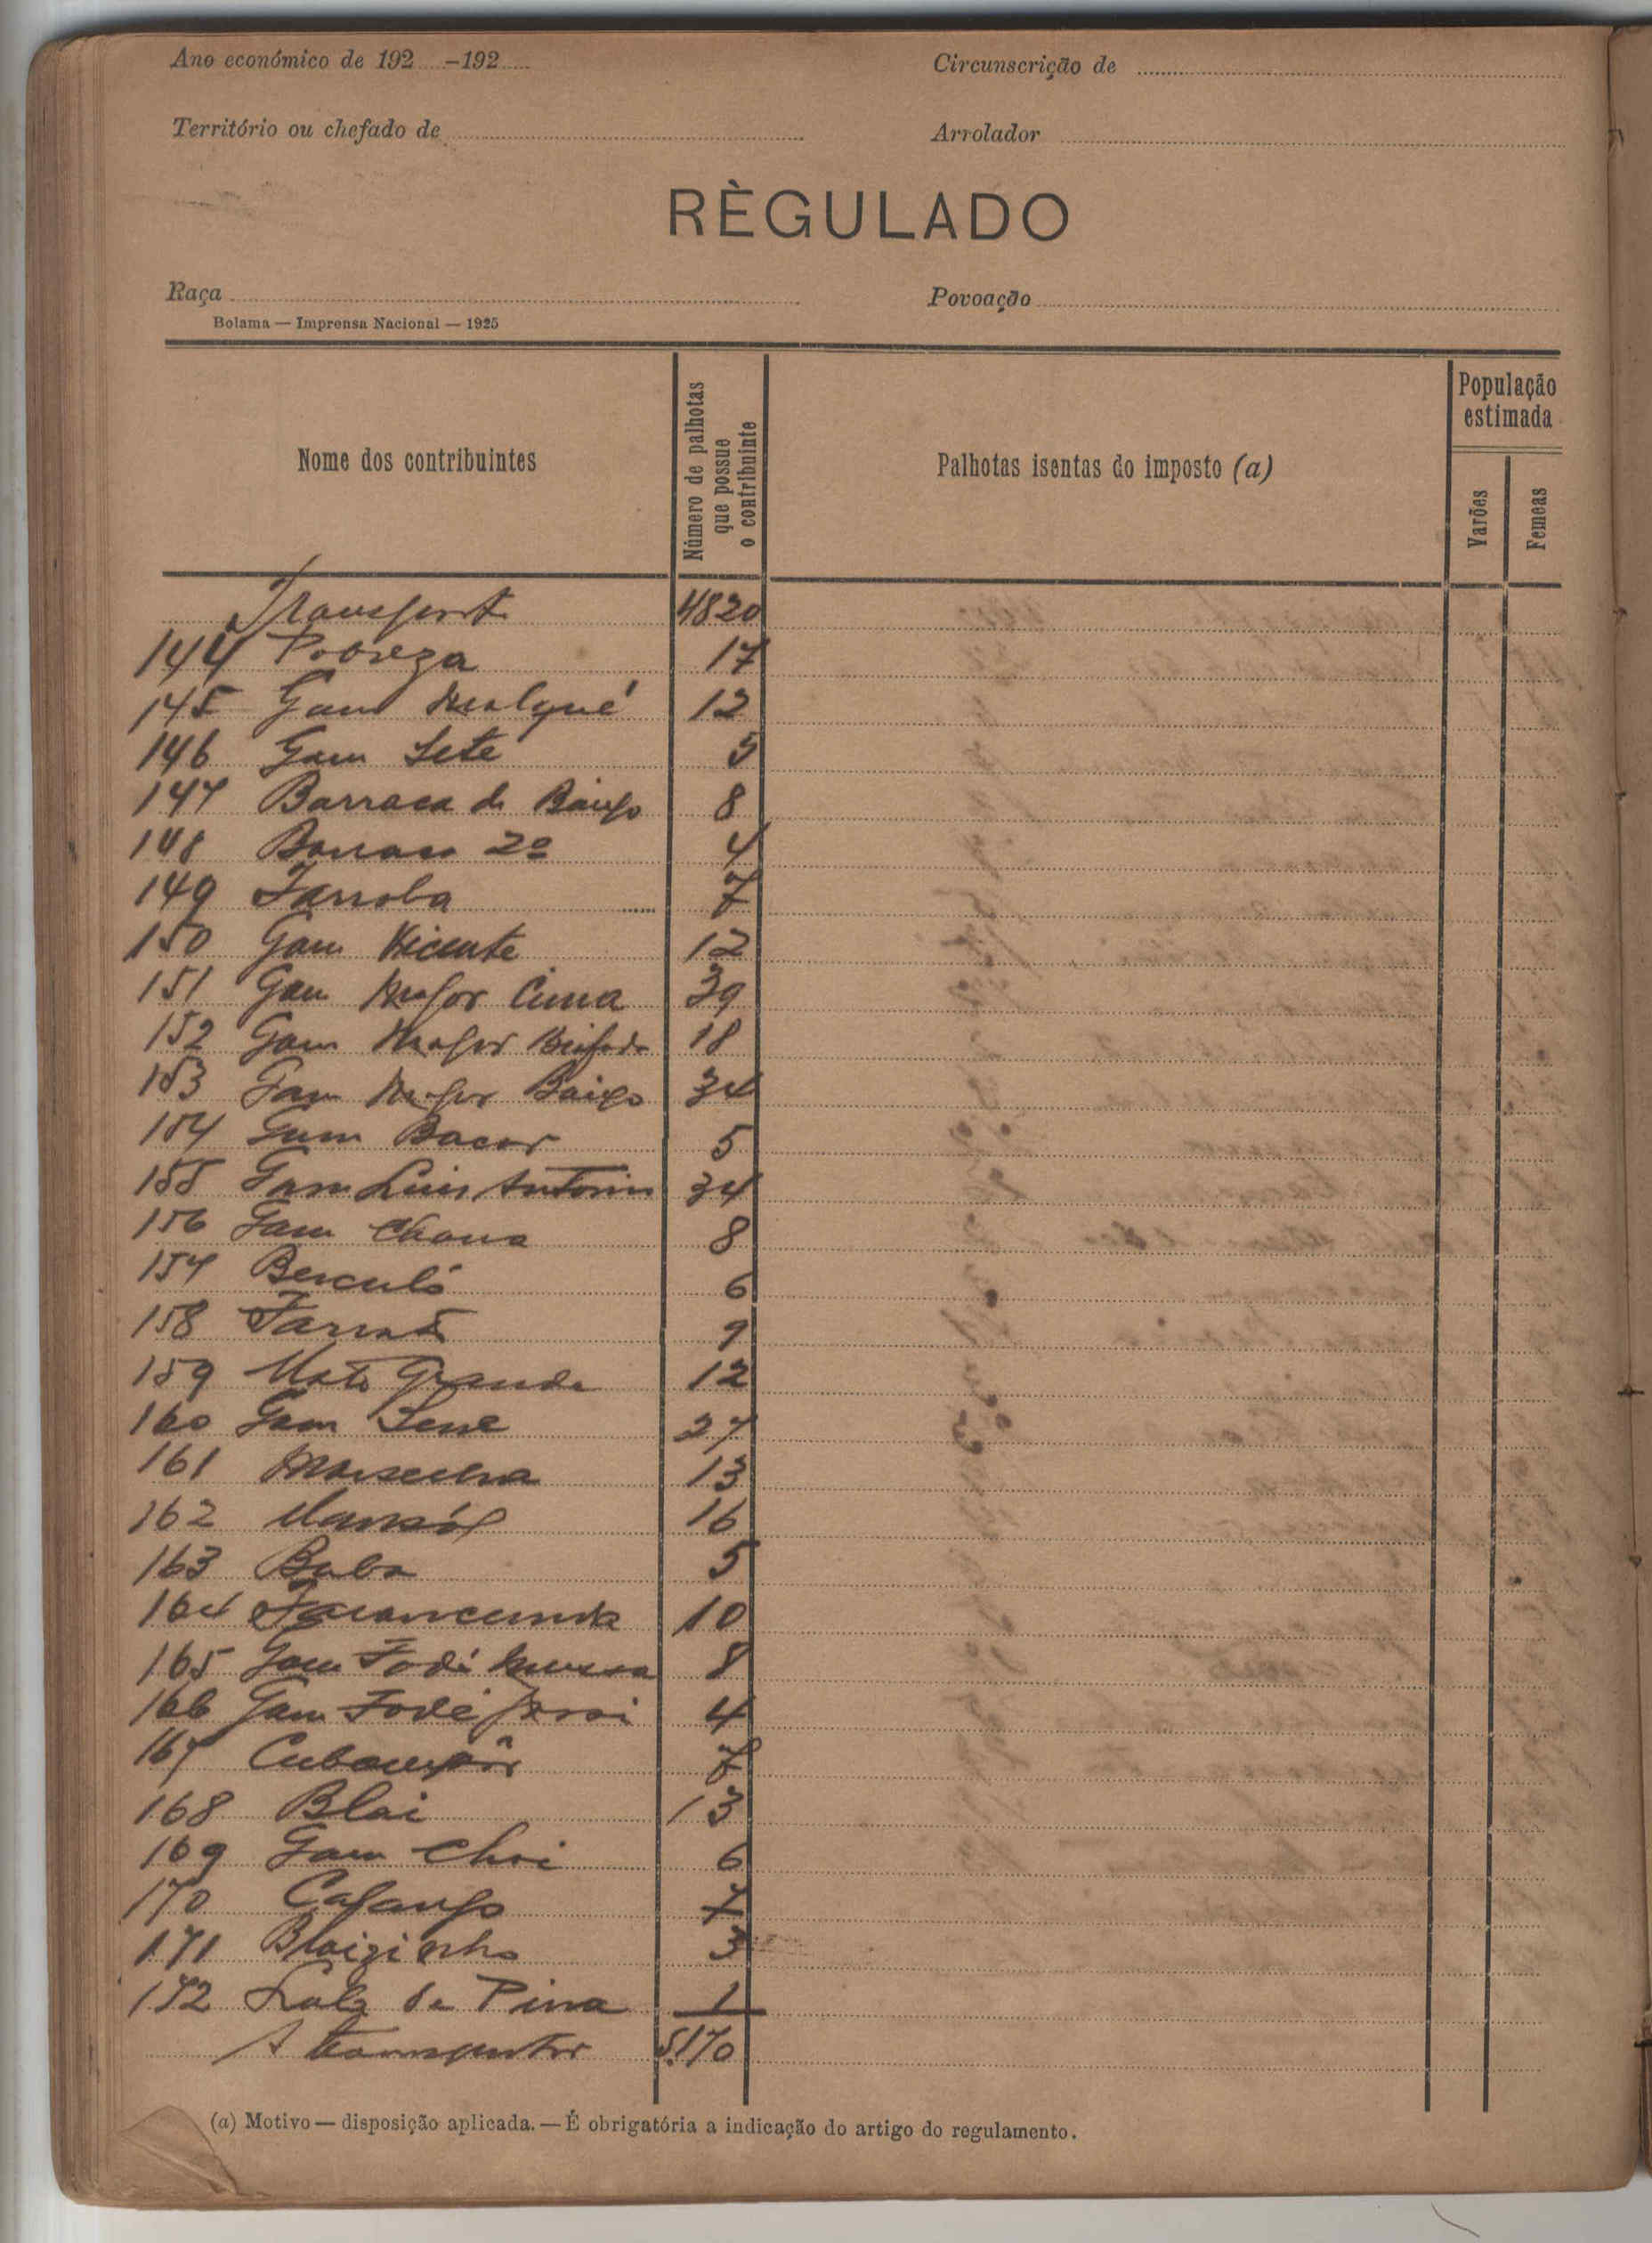 Ano económico de 192 -192
Circunscrição de
Território ou chefado de
Arrolador
RÈGULADO
Raça
Povoação
Bolama — Imprensa Nacional — 1925
Nome dos contribuintes
Número de palhotas que possue o contribuinte
Palhotas isentas do imposto (a)
População estimada
Varões
Femeas
Transport 4820
144 Pobreza 17
145 Gam 12
146 Gam Sete 5
147 Barraca de 8
148 2º 4
149 Tarroba 7
150 Gam Vicente 12
151 Gam Mafor Cima 39
152 Gam Mafor Biafada 18
153 Gam Mafor Baixo 34
154 Gam Bacar 5
155 Gam Luis Antonio 34
156 Gam 8
157 6
158 9
159 Mato Grande 12
160 Gam Sene 27
161 13
162 16
163 Baba 5
164 10
165 Gam Fodé 8
166 Gam Fodé 4
167 7
168 Blai 13
169 Gam Choi 6
170 7
171 Blaizinho 3
172 de Pina 1
A transportar 5.170
(a) Motivo — disposição aplicada. — É obrigatória a indicação do artigo do regulamento.